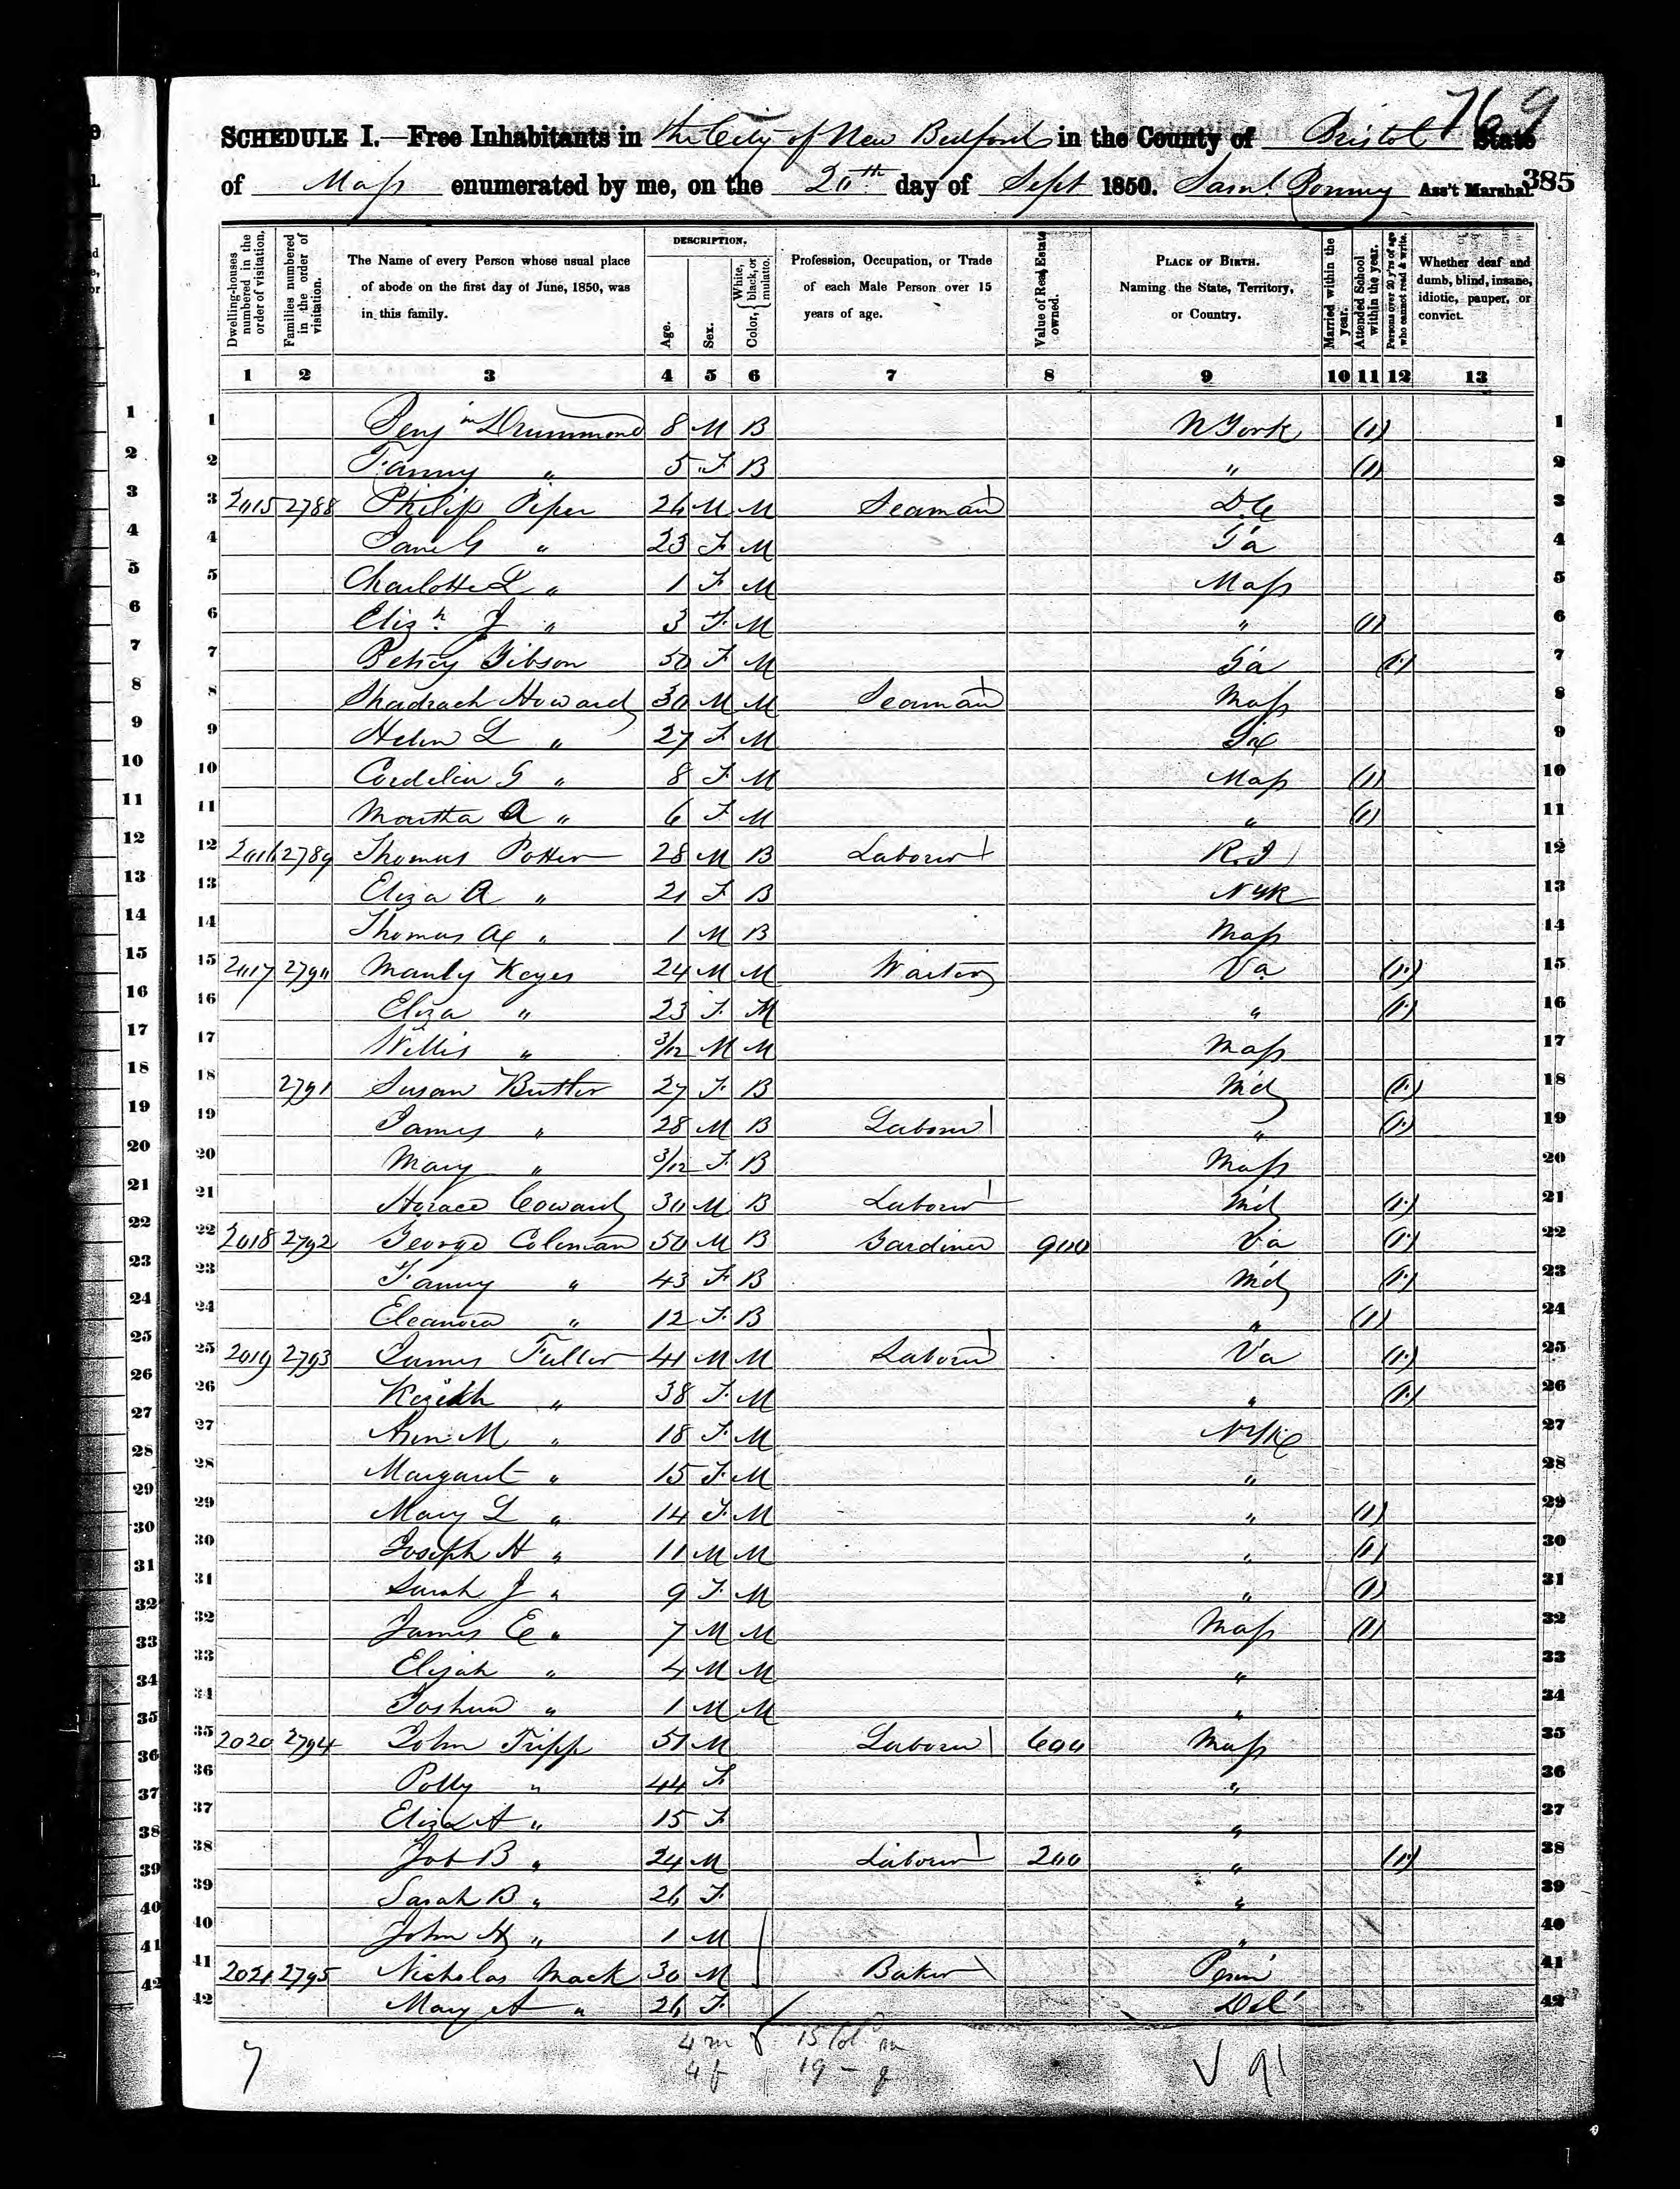 769
SCHEDULE I.—Free Inhabitants in the City of New Bedford in the County of Bristol State
of Mass enumerated by me, on the 20th day of Sept 1850. Saml Bonney Ass't Marshal. 385
Dwelling-houses numbered in the order of visitation.
Families numbered in the order of visitation.
The Name of every Person whose usual place of abode on the first day of June, 1850, was in this family.
DESCRIPTION.
Age.
Sex.
Color, White, black, or mulatto.
Profession, Occupation, or Trade of each Male Person over 15 years of age.
Value of Real Estate owned.
PLACE OF BIRTH. Naming the State, Territory, or Country.
Married within the year.
Attended School within the year.
Persons over 20 y'rs of age who cannot read & write.
Whether deaf and dumb, blind, insane, idiotic, pauper, or convict.
1 2 3 4 5 6 7 8 9 10 11 12 13
1 Benjn Drummond 8 M B N York (1) 1
2 Fanny " 5 F B " (1) 2
3 2015 2788 Philip Piper 26 M M Seaman D.C 3
4 Jane G " 23 F M 4
5 Charlotte L " 1 F M Mass 5
6 Elizh J " 3 F M " (1) 6
7 Betsey Gibson 50 F M (1) 7
8 Shadrach Howard 30 M M Seaman Mass 8
9 Helen L " 27 F M 9
10 Cordelia G " 8 F M Mass (1) 10
11 Martha A " 6 F M " (1) 11
12 2016 2789 Thomas Potter 28 M B Laborer R.I 12
13 Eliza A " 21 F B N Yk 13
14 Thomas " 1 M B Mass 14
15 2017 2790 Manly Keyes 24 M M Waiter Va (1) 15
16 Eliza " 23 F M " (1) 16
17 Willis " 3/12 M M Mass 17
18 2791 Susan Butler 27 F B Md (1) 18
19 James " 28 M B Laborer " (1) 19
20 Mary " 3/12 F B Mass 20
21 Horace Coward 30 M B Laborer Md (1) 21
22 2018 2792 George Coleman 50 M B Gardiner 900 Va (1) 22
23 Fanny " 43 F B Md (1) 23
24 Eleanora " 12 F B " (1) 24
25 2019 2793 James Fuller 41 M M Laborer Va (1) 25
26 Keziah " 38 F M " (1) 26
27 Ann M " 18 F M N Yk 27
28 Margaret " 15 F M " 28
29 Mary L " 14 F M " (1) 29
30 Joseph H " 11 M M " (1) 30
31 Sarah J " 9 F M " (1) 31
32 James E " 7 M M Mass (1) 32
33 Elijah " 4 M M " 33
34 Joshua " 1 M M " 34
35 2020 2794 John Tripp 51 M Laborer 600 Mass 35
36 Polly " 44 F " 36
37 Eliza A " 15 F " 37
38 Job B " 24 M Laborer 200 " (1) 38
39 Sarah B " 26 F " 39
40 John H " 1 M " 40
41 2021 2795 Nicholas Mack 30 M Baker Penn 41
42 Mary A " 26 F Del 42
7 4 m 15 Col m
4 f 19 - f
91